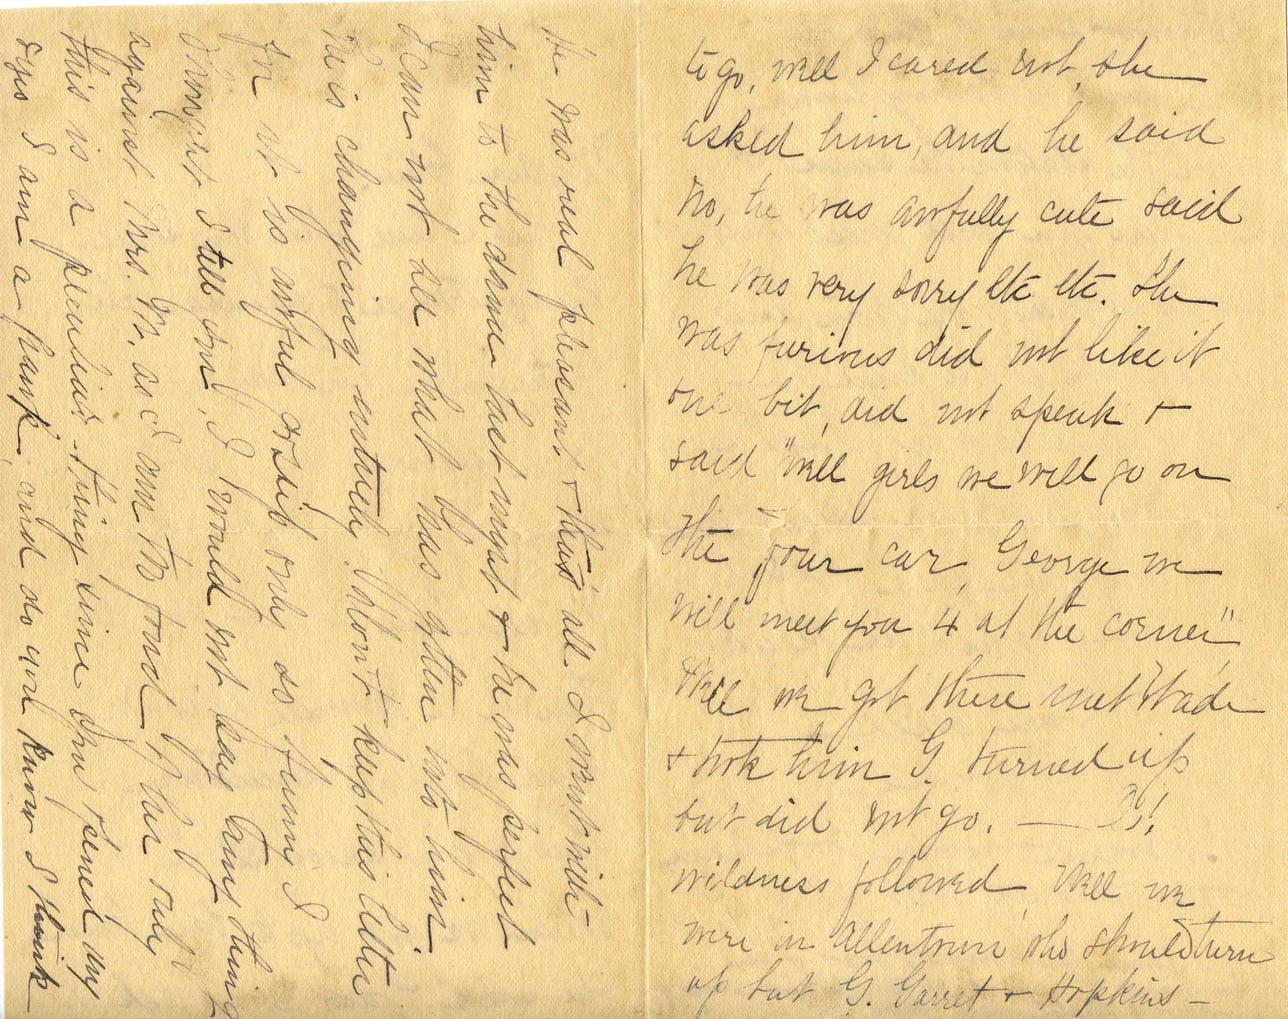 to go, well I cared not, she
asked him, and he said
No, he was awfully cute said
he was very sorry etc etc. She
was furious did not like it
one bit, did not speak &
said "Well girls we will go on
the four car, George we
will meet you 4 at the corner"
Well we got there met Wade
& took him G. turned up
but did not go. — !!
wildness followed Well we
were in Allentown who should turn
up but G. Garret & Hopkins —
He was real pleasant & that's all I went with
him to the dance last night & he was perfect
I can not see what has gotten into him
he is changing entirely. Don't keep this letter
for it is awful gossip only so funny I
thought I tell you, I would not say any thing
against Mrs. M. as I am too fond of her only
this is a peculiar thing since you opened my
eyes I am a hawk, and do you know I think